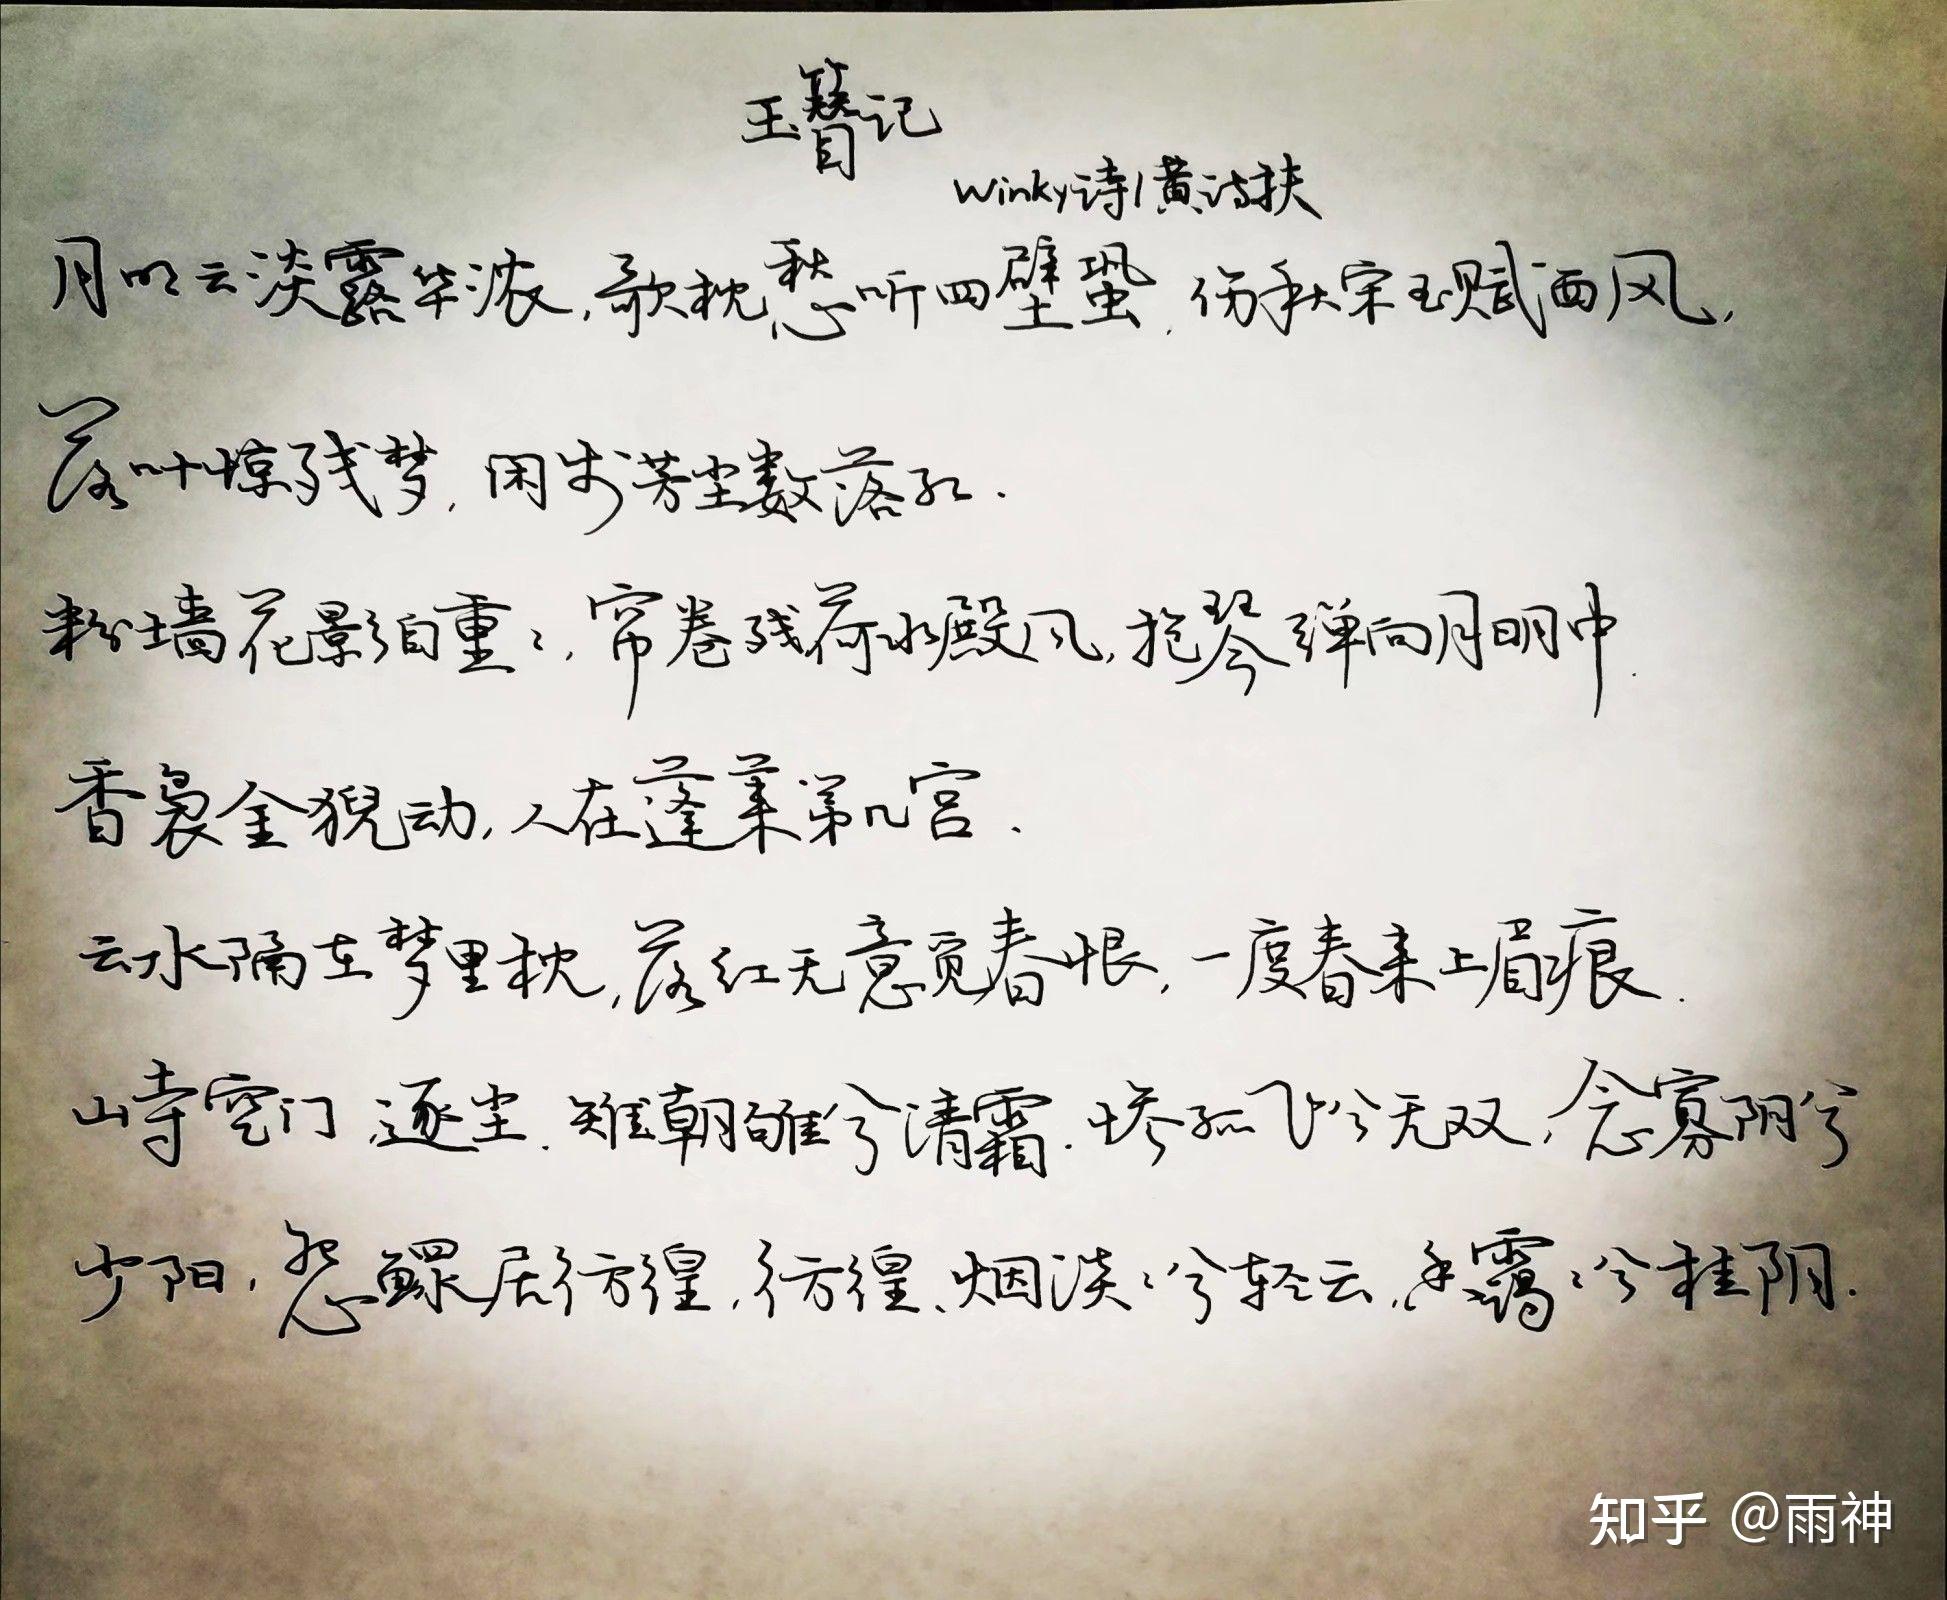 玉簪记
Winky诗/黄诗扶
月明云淡露华浓,歌枕愁听四壁蛩,伤秋宋玉赋西风,
落叶惊残梦,闲步芳尘数落红.
粉墙花影自重々,帘卷残荷水殿风,抱琴弹向月明中.
香袅金猊动,人在蓬莱第几宫.
云水隔在梦里枕,落红无意觅春恨,一度春来上眉痕.
山寺空门,逐尘.雉朝雊兮清霜.惨孤飞兮无双,念寡阴兮
少阳,怨鳏居彷徨,彷徨、烟淡々兮轻云,香霭々兮桂阴.
知乎 @雨神